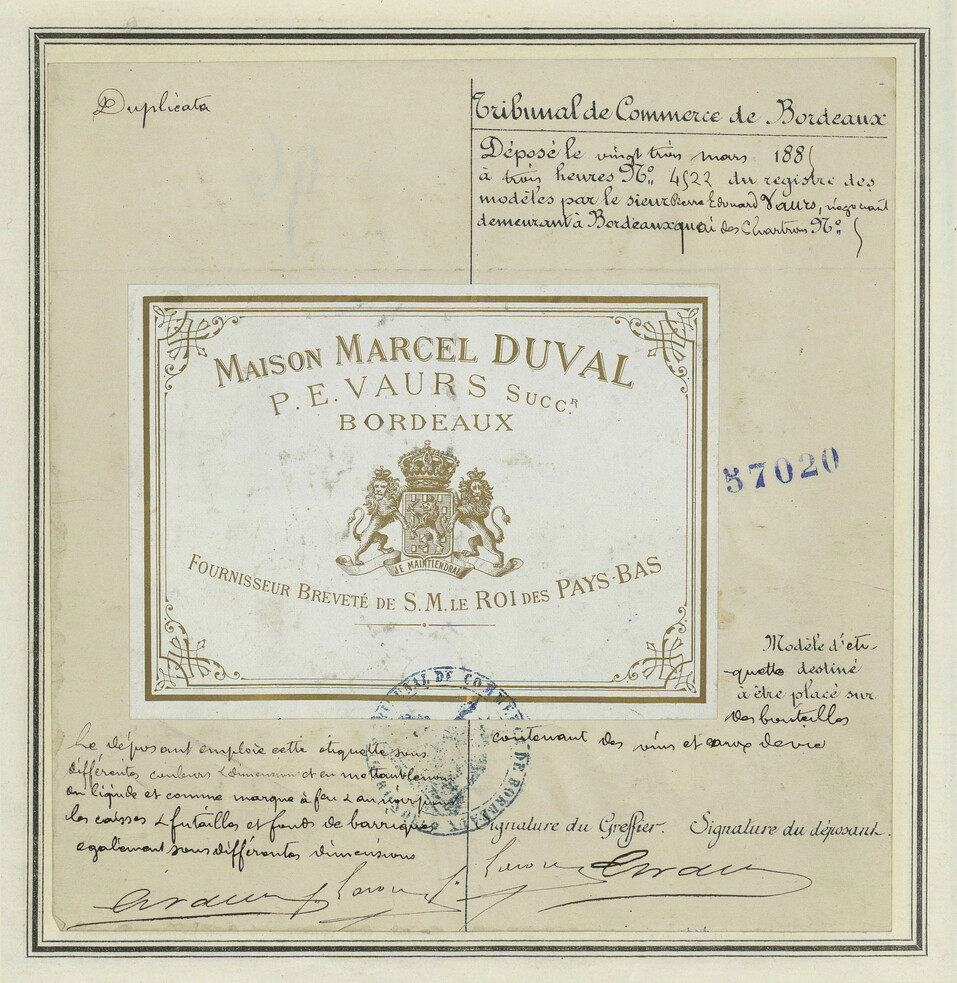 Duplicata
Tribunal de Commerce de Bordeaux
Déposé le vingt trois mars 1885
à trois heures No. 4522 du registre des
modèles par le sieur Pierre Edouard Vaurs, négociant
demeurant à Bordeaux quai des Chartrons No. 5
MAISON MARCEL DUVAL
P. E. VAURS SUCCR.
BORDEAUX
JE MAINTIENDRAI
FOURNISSEUR BREVETÉ DE S. M. LE ROI DES PAYS-BAS
57020
Modèle d'éti-
quette destiné
à être placé sur
des bouteilles
contenant des vins et eaux de vie
TRIBUNAL DE COMMERCE DE BORDEAUX
Le déposant emploie cette étiquette sous
différentes couleurs & dimensions et en mettant le nom
du liquide et comme marque à feu & au noir pour
les caisses & futailles et fonds de barriques
également sous différentes dimensions
Signature du Greffier. Signature du déposant.